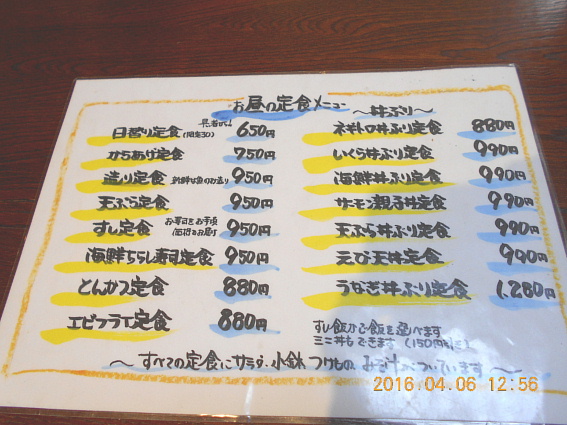 お昼の定食メニュー
日替り定食 (限定30) 早者勝ち! 650円
からあげ定食 750円
造り定食 新鮮な魚のお造り 950円
天ぷら定食 950円
すし定食 お寿司をお手頃価格でお届け 950円
海鮮ちらし寿司定食 950円
とんかつ定食 880円
エビフライ定食 880円
〜丼ぶり〜
ネギトロ丼ぶり定食 880円
いくら丼ぶり定食 990円
海鮮丼ぶり定食 990円
サーモン親子丼定食 990円
天ぷら丼ぶり定食 990円
えび天丼定食 990円
うなぎ丼ぶり定食 1,280円
すし飯かご飯を選べます
ミニ丼もできます (150円引き)
〜すべての定食にサラダ、小鉢、つけもの、みそ汁がついています〜
2016.04.06 12:56